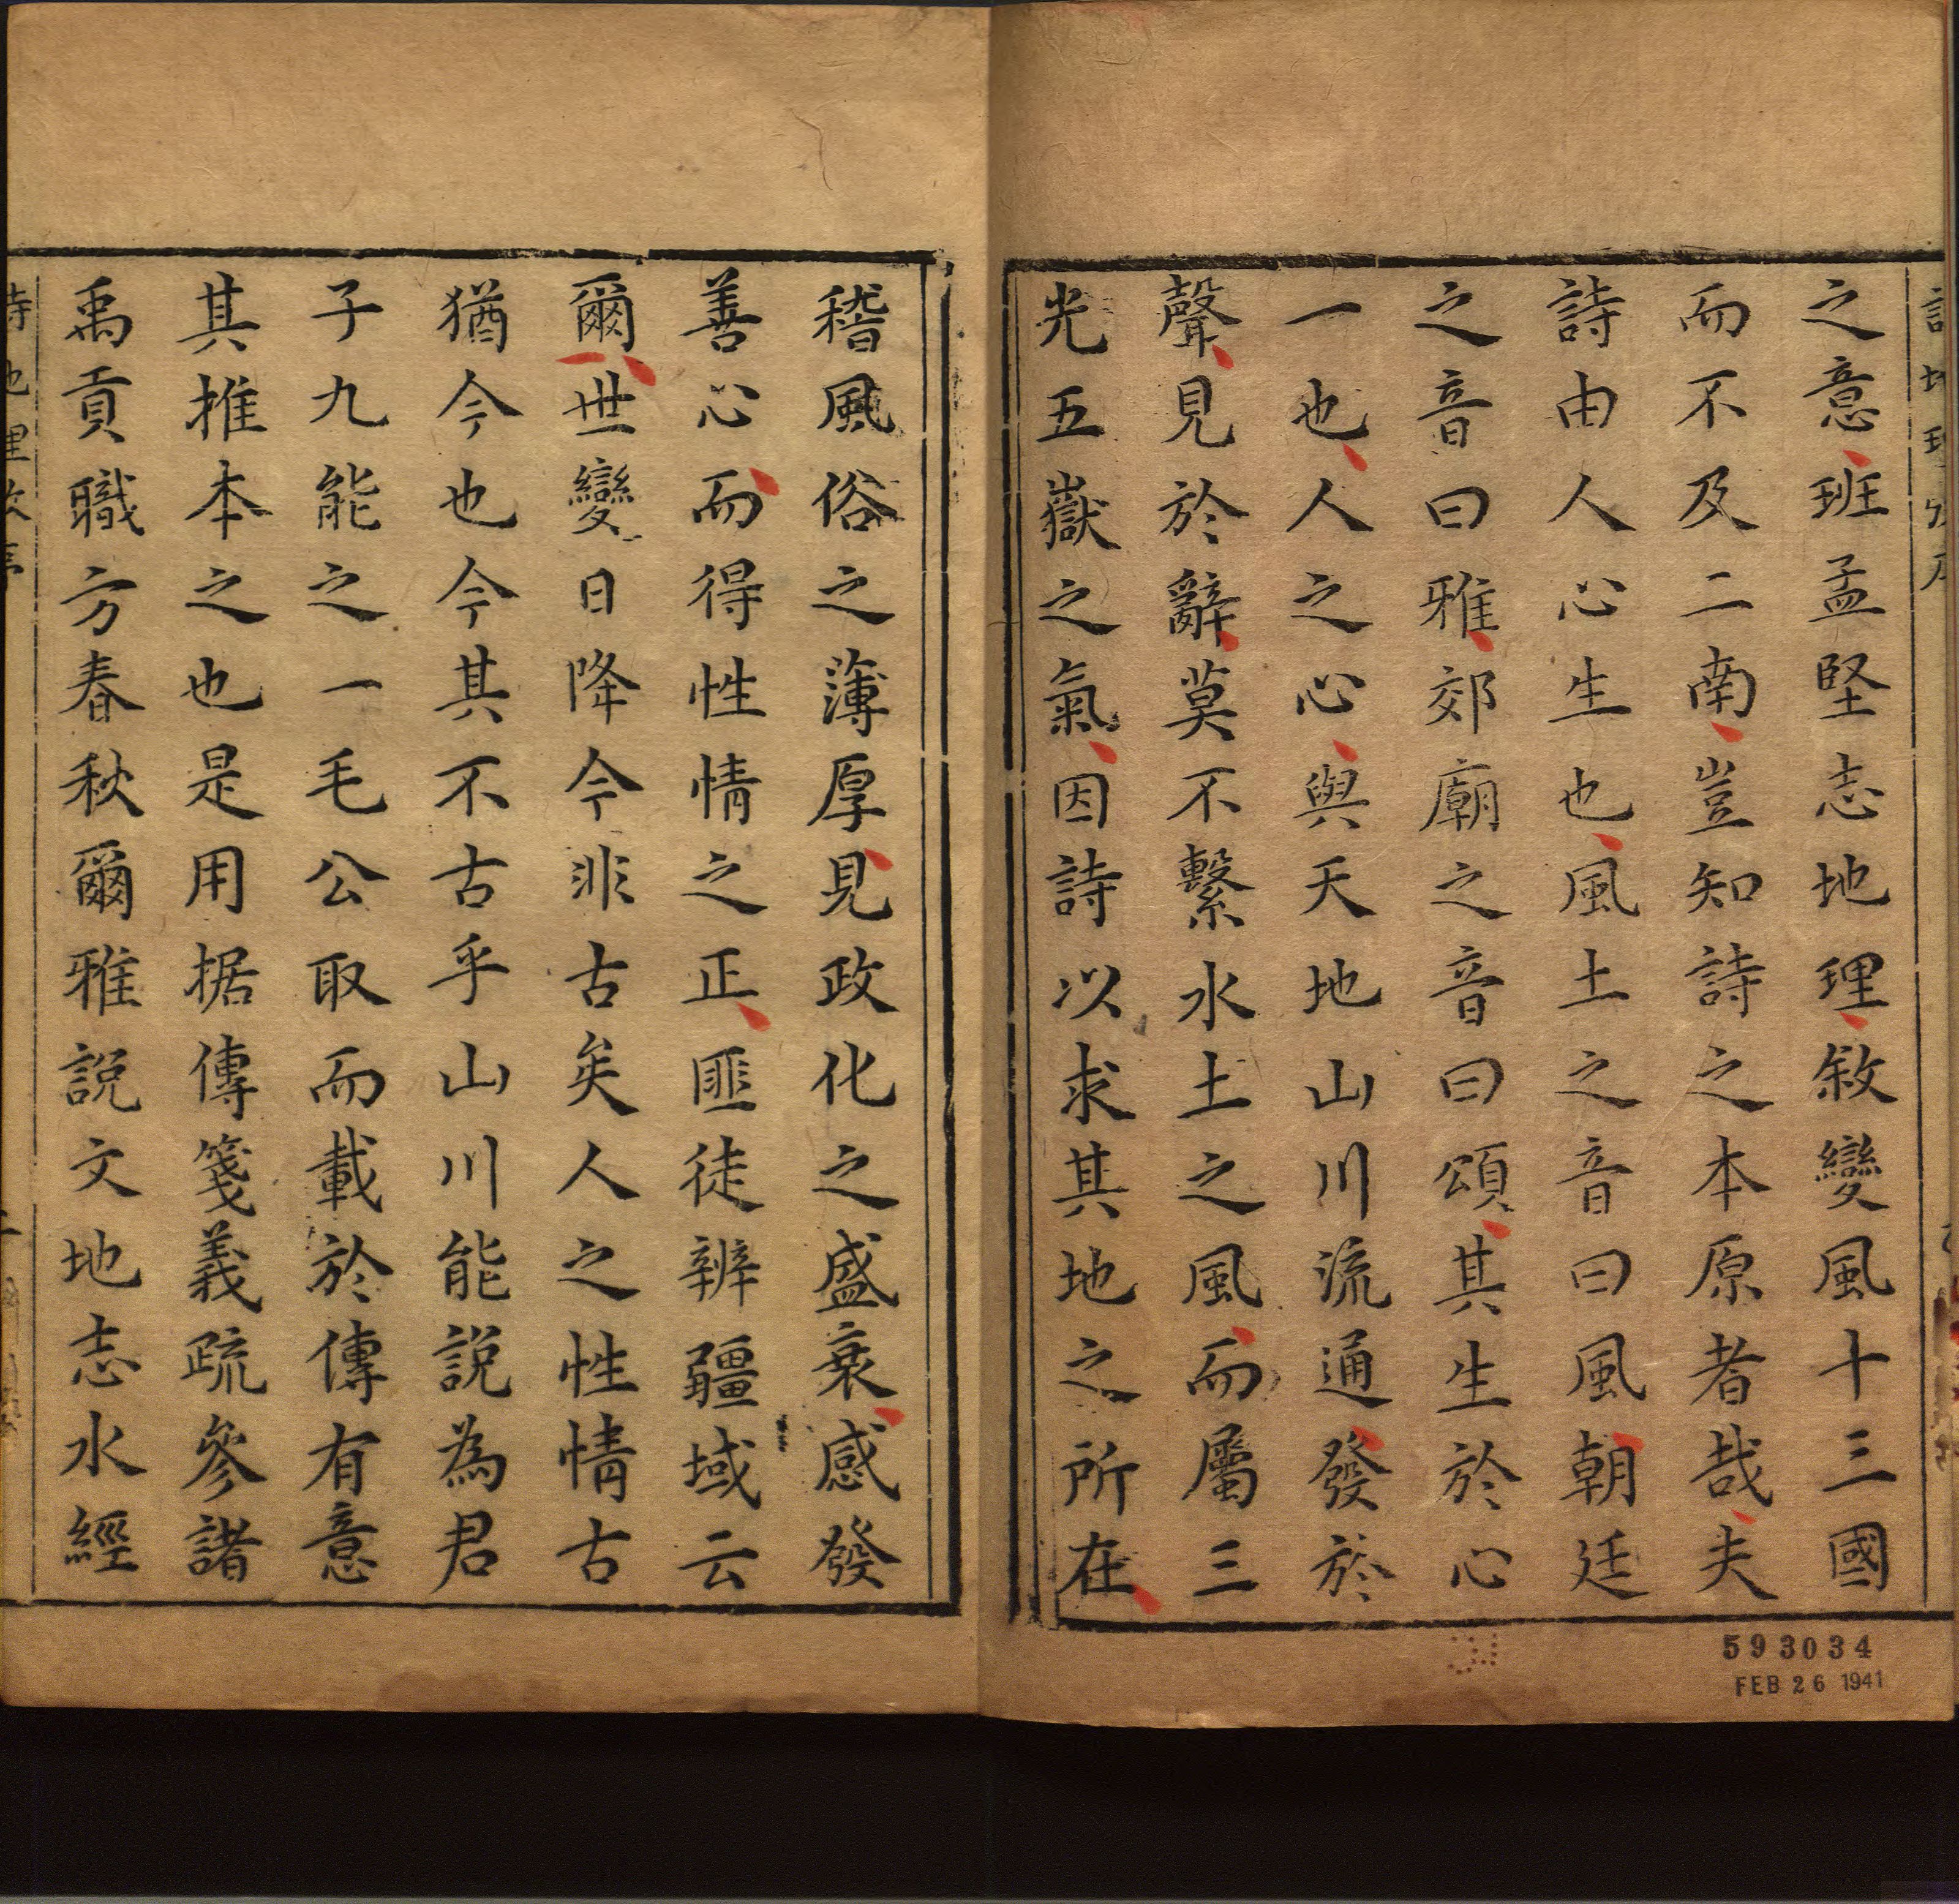 之意班孟堅志地理敘變風十三國
而不及二南豈知詩之本原者哉夫
詩由人心生也風土之音曰風朝廷
之音曰雅郊廟之音曰頌其生於心
一也人之心與天地山川流通發於
聲見於辭莫不繫水土之風而屬三
光五嶽之氣因詩以求其地之所在
稽風俗之薄厚見政化之盛衰感發
善心而得性情之正匪徒辨疆域云
爾世變日降今非古矣人之性情古
猶今也今其不古乎山川能說為君
子九能之一毛公取而載於傳有意
其推本之也是用据傳箋義疏參諸
禹貢職方春秋爾雅說文地志水經
593034
FEB 26 1941